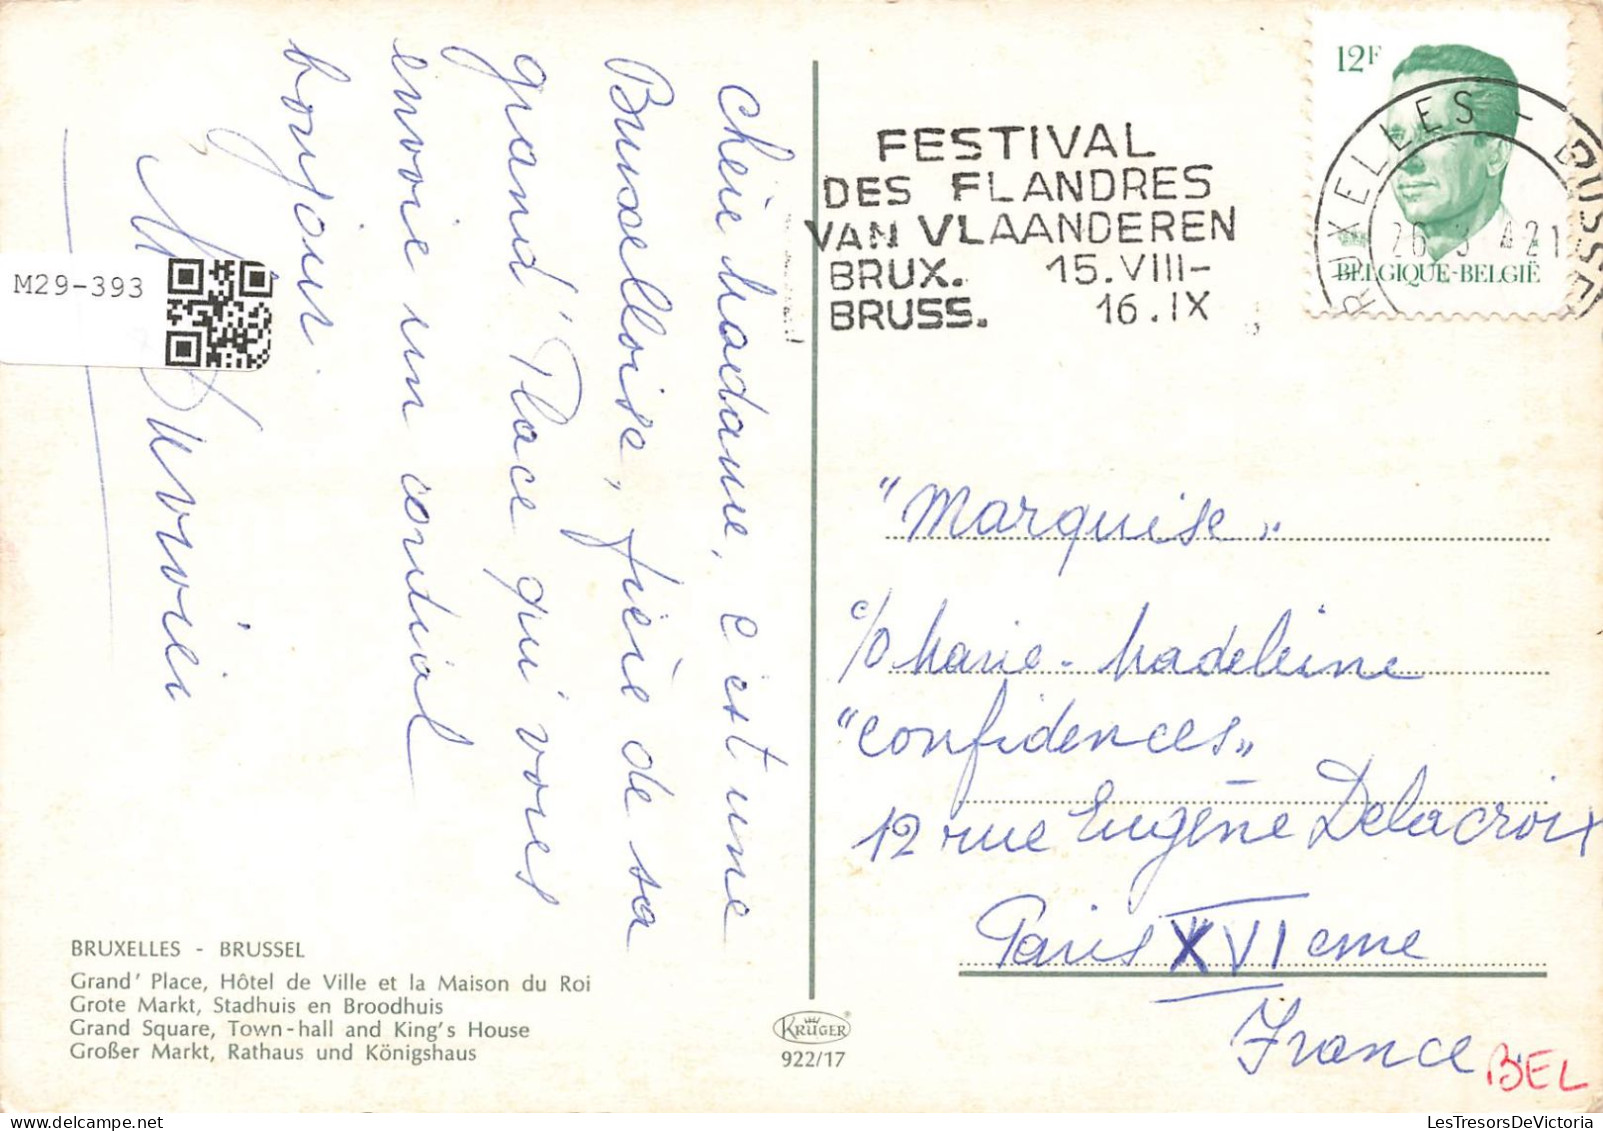 Chère Madame, c'est une
Bruxelloise, fière de sa
grand' Place qui vous
envoie un cordial
bonjour.
M29-393
BRUXELLES - BRUSSEL
Grand' Place, Hôtel de Ville et la Maison du Roi
Grote Markt, Stadhuis en Broodhuis
Grand Square, Town-hall and King's House
Großer Markt, Rathaus und Königshaus
KRÜGER
922/17
FESTIVAL
DES FLANDRES
VAN VLAANDEREN
BRUX. 15.VIII-
BRUSS. 16.IX
12F
BELGIQUE-BELGIË
BRUXELLES - BRUSSEL
"Marquise"
c/o Marie-Madeleine
"Confidences"
12 rue Eugène Delacroix
Paris XVIeme
France
BEL
LesTresorsDeVictoria.com